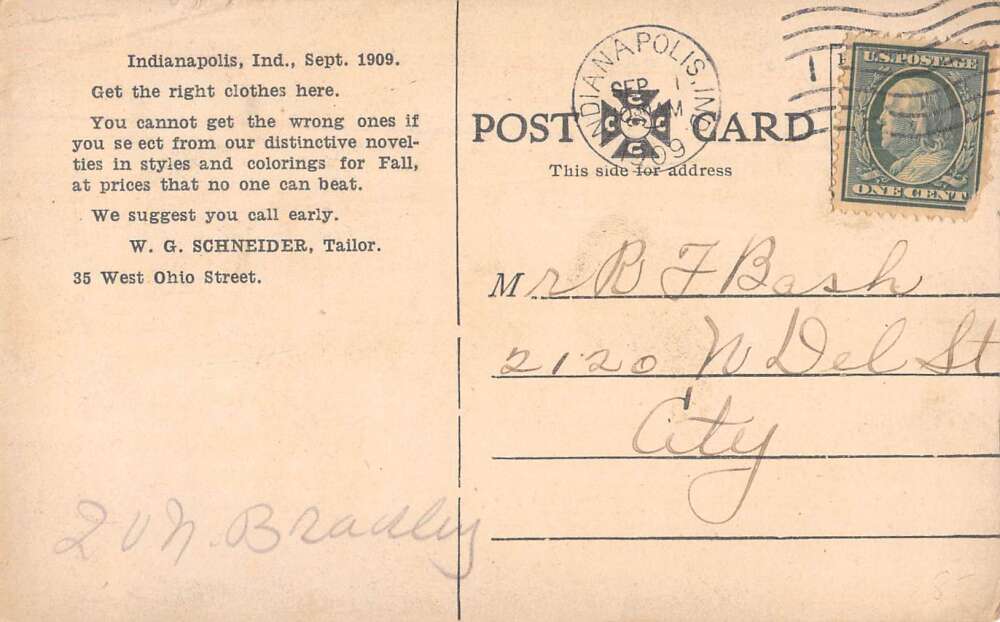 Indianapolis, Ind., Sept. 1909.
Get the right clothes here.
You cannot get the wrong ones if
you se ect from our distinctive novel-
ties in styles and colorings for Fall,
at prices that no one can beat.
We suggest you call early.
W. G. SCHNEIDER, Tailor.
35 West Ohio Street.
N. Bradley
INDIANAPOLIS, IND.
SEP 1
1909
POST CARD
This side for address
U.S. POSTAGE
ONE CENT
Mr B F Bash
2120 N Del St
City